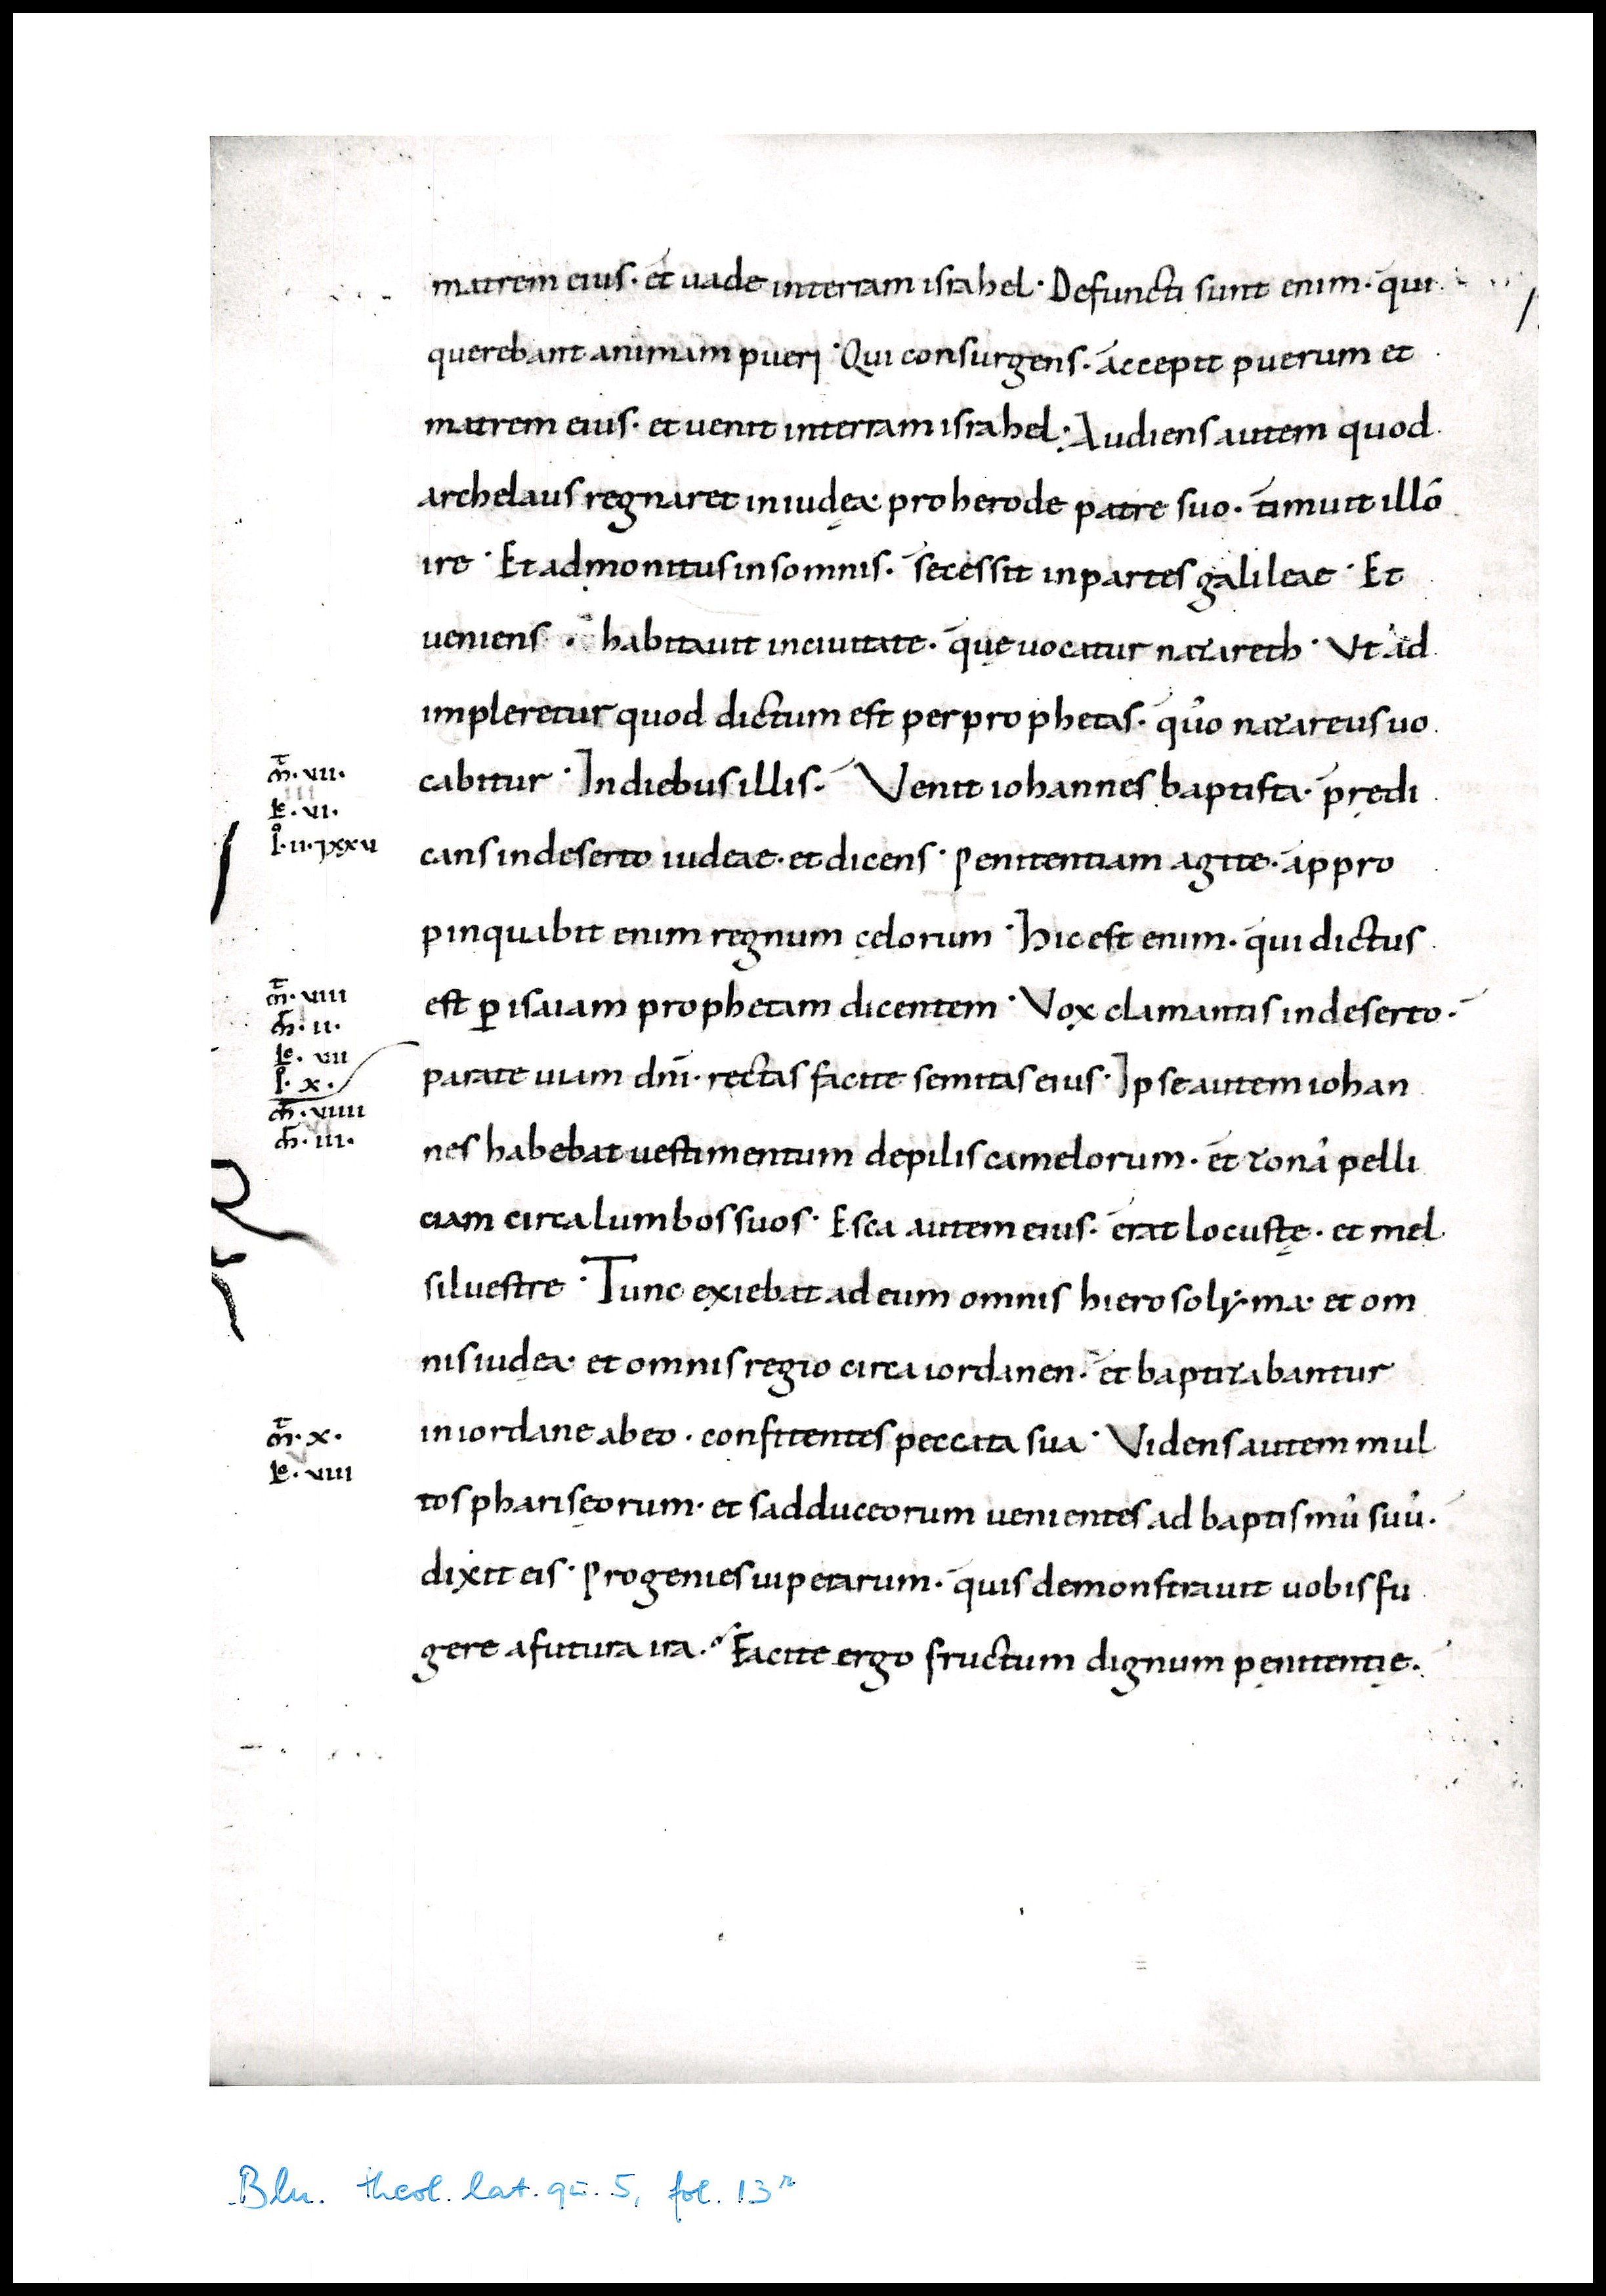 matrem eius· et uade interram israhel· Defuncti sunt enim· qui
querebant animam pueri· Qui consurgens· accepit puerum et
matrem eius· et uenit interram israhel· Audiens autem quod
archelaus regnaret iniudęa pro herode patre suo· timuit illo
ire· Et admonitus insomnis· secessit inpartes galileae· Et
ueniens· habitauit inciuitate· quę uocatur nazareth· Vt ad
impleretur quod dictum est per prophetas· qūo nazareus uo
cabitur· Indiebus illis· Venit iohannes baptista· prędi
cans indeserto iudeae· et dicens· Penitentiam agite· appro
pinquabit enim regnum cęlorum· hic est enim· qui dictus
est ꝑ isaiam prophetam dicentem· Vox clamantis indeserto·
parate uiam dn̄i· rectas facite semitas eius· Ipse autem iohan
nes habebat uestimentum depilis camelorum· et zonā pelli
ciam circa lumbos suos· Esca autem eius· erat locustę· et mel
siluestre· Tunc exiebat ad eum omnis hierosolyma· et om
nis iudea· et omnis regio circa iordanen· et baptizabantur
iniordane abeo· confitentes peccata sua· Videns autem mul
tos pharisęorum· et sadduceorum uenientes ad baptismū suū·
dixit eis· Progenies uiperarum· quis demonstrauit uobis fu
gere afutura ira· Facite ergo fructum dignum pęnitentię·
m̄· vii·
lc· vi·
m̄· viii
lc· vii
I· x·
m̄· x·
lc· viii
Bln. theol. lat. qu. 5, fol. 13r